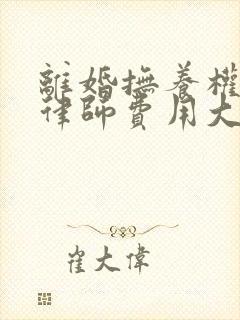 離婚撫養權
律師費用大
崔大偉